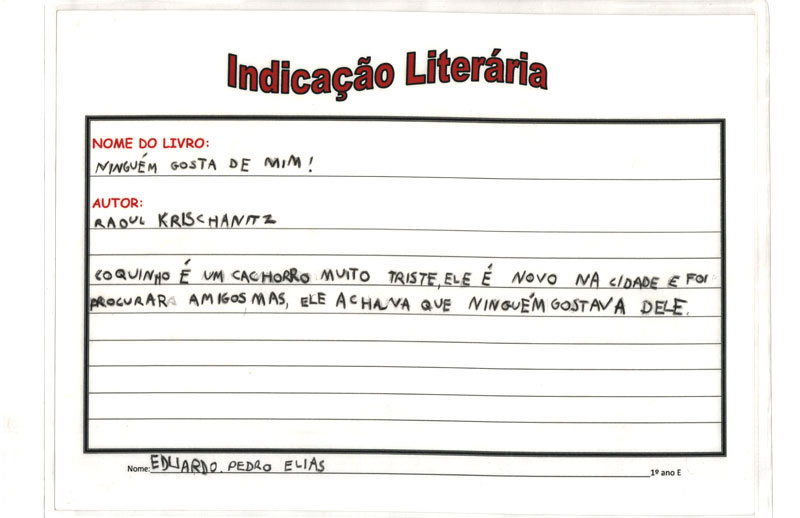 Indicação Literária
NOME DO LIVRO:
NINGUÉM GOSTA DE MIM!
AUTOR:
RAOUL KRISCHANITZ
COQUINHO É UM CACHORRO MUITO TRISTE, ELE É NOVO NA CIDADE E FOI
PROCURAR AMIGOS MAS, ELE ACHAVA QUE NINGUÉM GOSTAVA DELE.
Nome: EDUARDO. PEDRO ELIAS 1º ano E